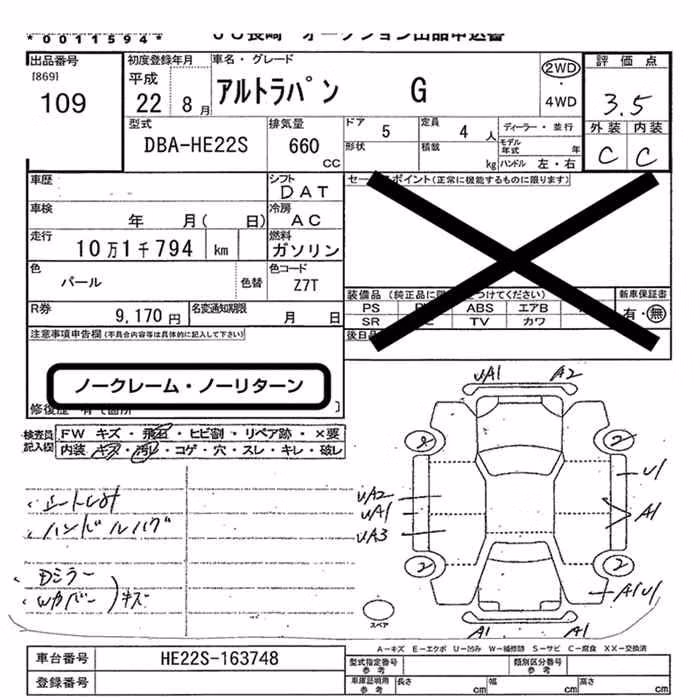 *0011594* JU長崎 オークション出品申込書
出品番号 初度登録年月 車名・グレード 評価点
[869] 平成 2WD
109 22 8月 アルトラパン G ・4WD 3.5
型式 排気量 ドア 5 定員 4人 ディーラー・並行 外装 内装
DBA-HE22S 660 CC 形状 積載 kg モデル年式 年 C C
ハンドル 左・右
車歴 シフト DAT セールスポイント(正常に機能するものに限ります)
車検 年 月( 日) 冷房 AC
走行 10万1千794 km 燃料 ガソリン
色 パール 色替 色コード Z7T
装備品 (純正品に つけてください) 新車保証書
R券 9,170円 名変通知期限 月 日 PS ABS エアB 有・無
SR TV カワ
注意事項申告欄(不具合内容等は具体的に記入して下さい) 後日品
ノークレーム・ノーリターン
修復歴 有て箇所
検査員 FW キズ・飛石・ヒビ割・リペア跡・×要
記入欄 内装 キズ・汚レ・コゲ・穴・スレ・キレ・破レ
UA1 A2
2 2
U1
・ハンドルハゲ UA2
UA1 A1
UA3
・Dミラー 2 2
Wカバー )キズ A1U1
スペア
A1 A1
A-キズ E-エクボ U-凹み W-補修跡 S-サビ C-腐食 XX-交換済
車台番号 HE22S-163748 型式指定番号 参考 類別区分番号 参考
登録番号 車庫証明用 参考 長さ cm 幅 cm 高さ cm